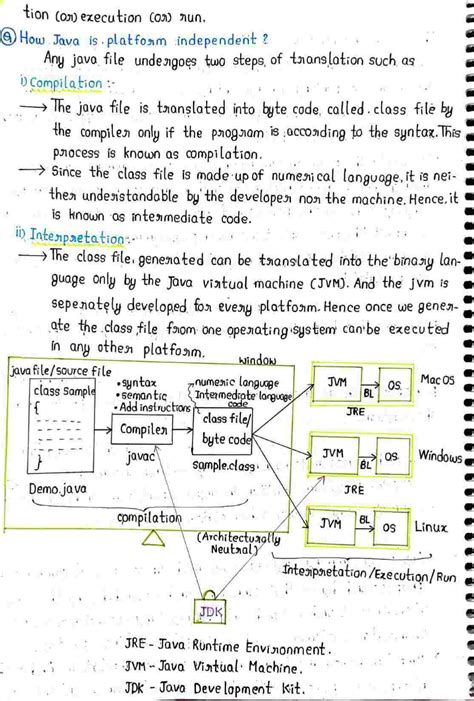 tion (or) execution (or) run.
Q How Java is platform independent ?
Any java file undergoes two steps of translation such as
i) Compilation :-
→ The java file is translated into byte code, called .class file by
the compiler only if the program is according to the syntax. This
process is known as compilation.
→ Since the class file is made up of numerical language, it is nei-
ther understandable by the developer nor the machine. Hence, it
is known as intermediate code.
ii) Interpretation:-
→ The class file, generated can be translated into the binary lan-
guage only by the Java virtual machine (JVM). And the jvm is
seperately developed for every platform. Hence once we gener-
ate the class file from one operating system can be executed
in any other platform.
window
java file/source file
class Sample
{
}
Demo.java
•syntax
•semantic
•Add instructions
Compiler
javac
numeric language
Intermediate language
code
class file/
byte code
sample.class
compilation
(Architecturally
Neutral)
JVM
BL
OS
Mac OS
JRE
JVM
BL
OS
Windows
JRE
JVM
BL
OS
Linux
Interpretation/Execution/Run
JDK
JRE - Java Runtime Environment.
JVM - Java Virtual Machine.
JDK - Java Development Kit.